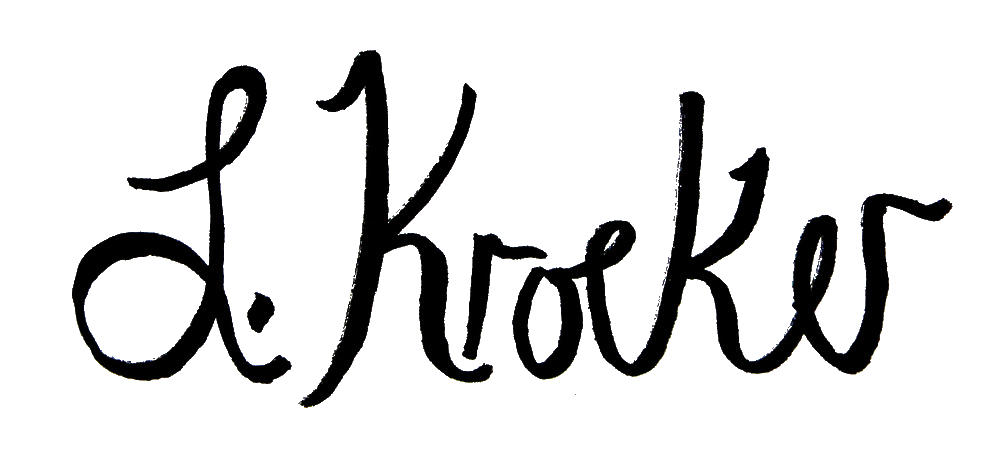 L. Kroeker